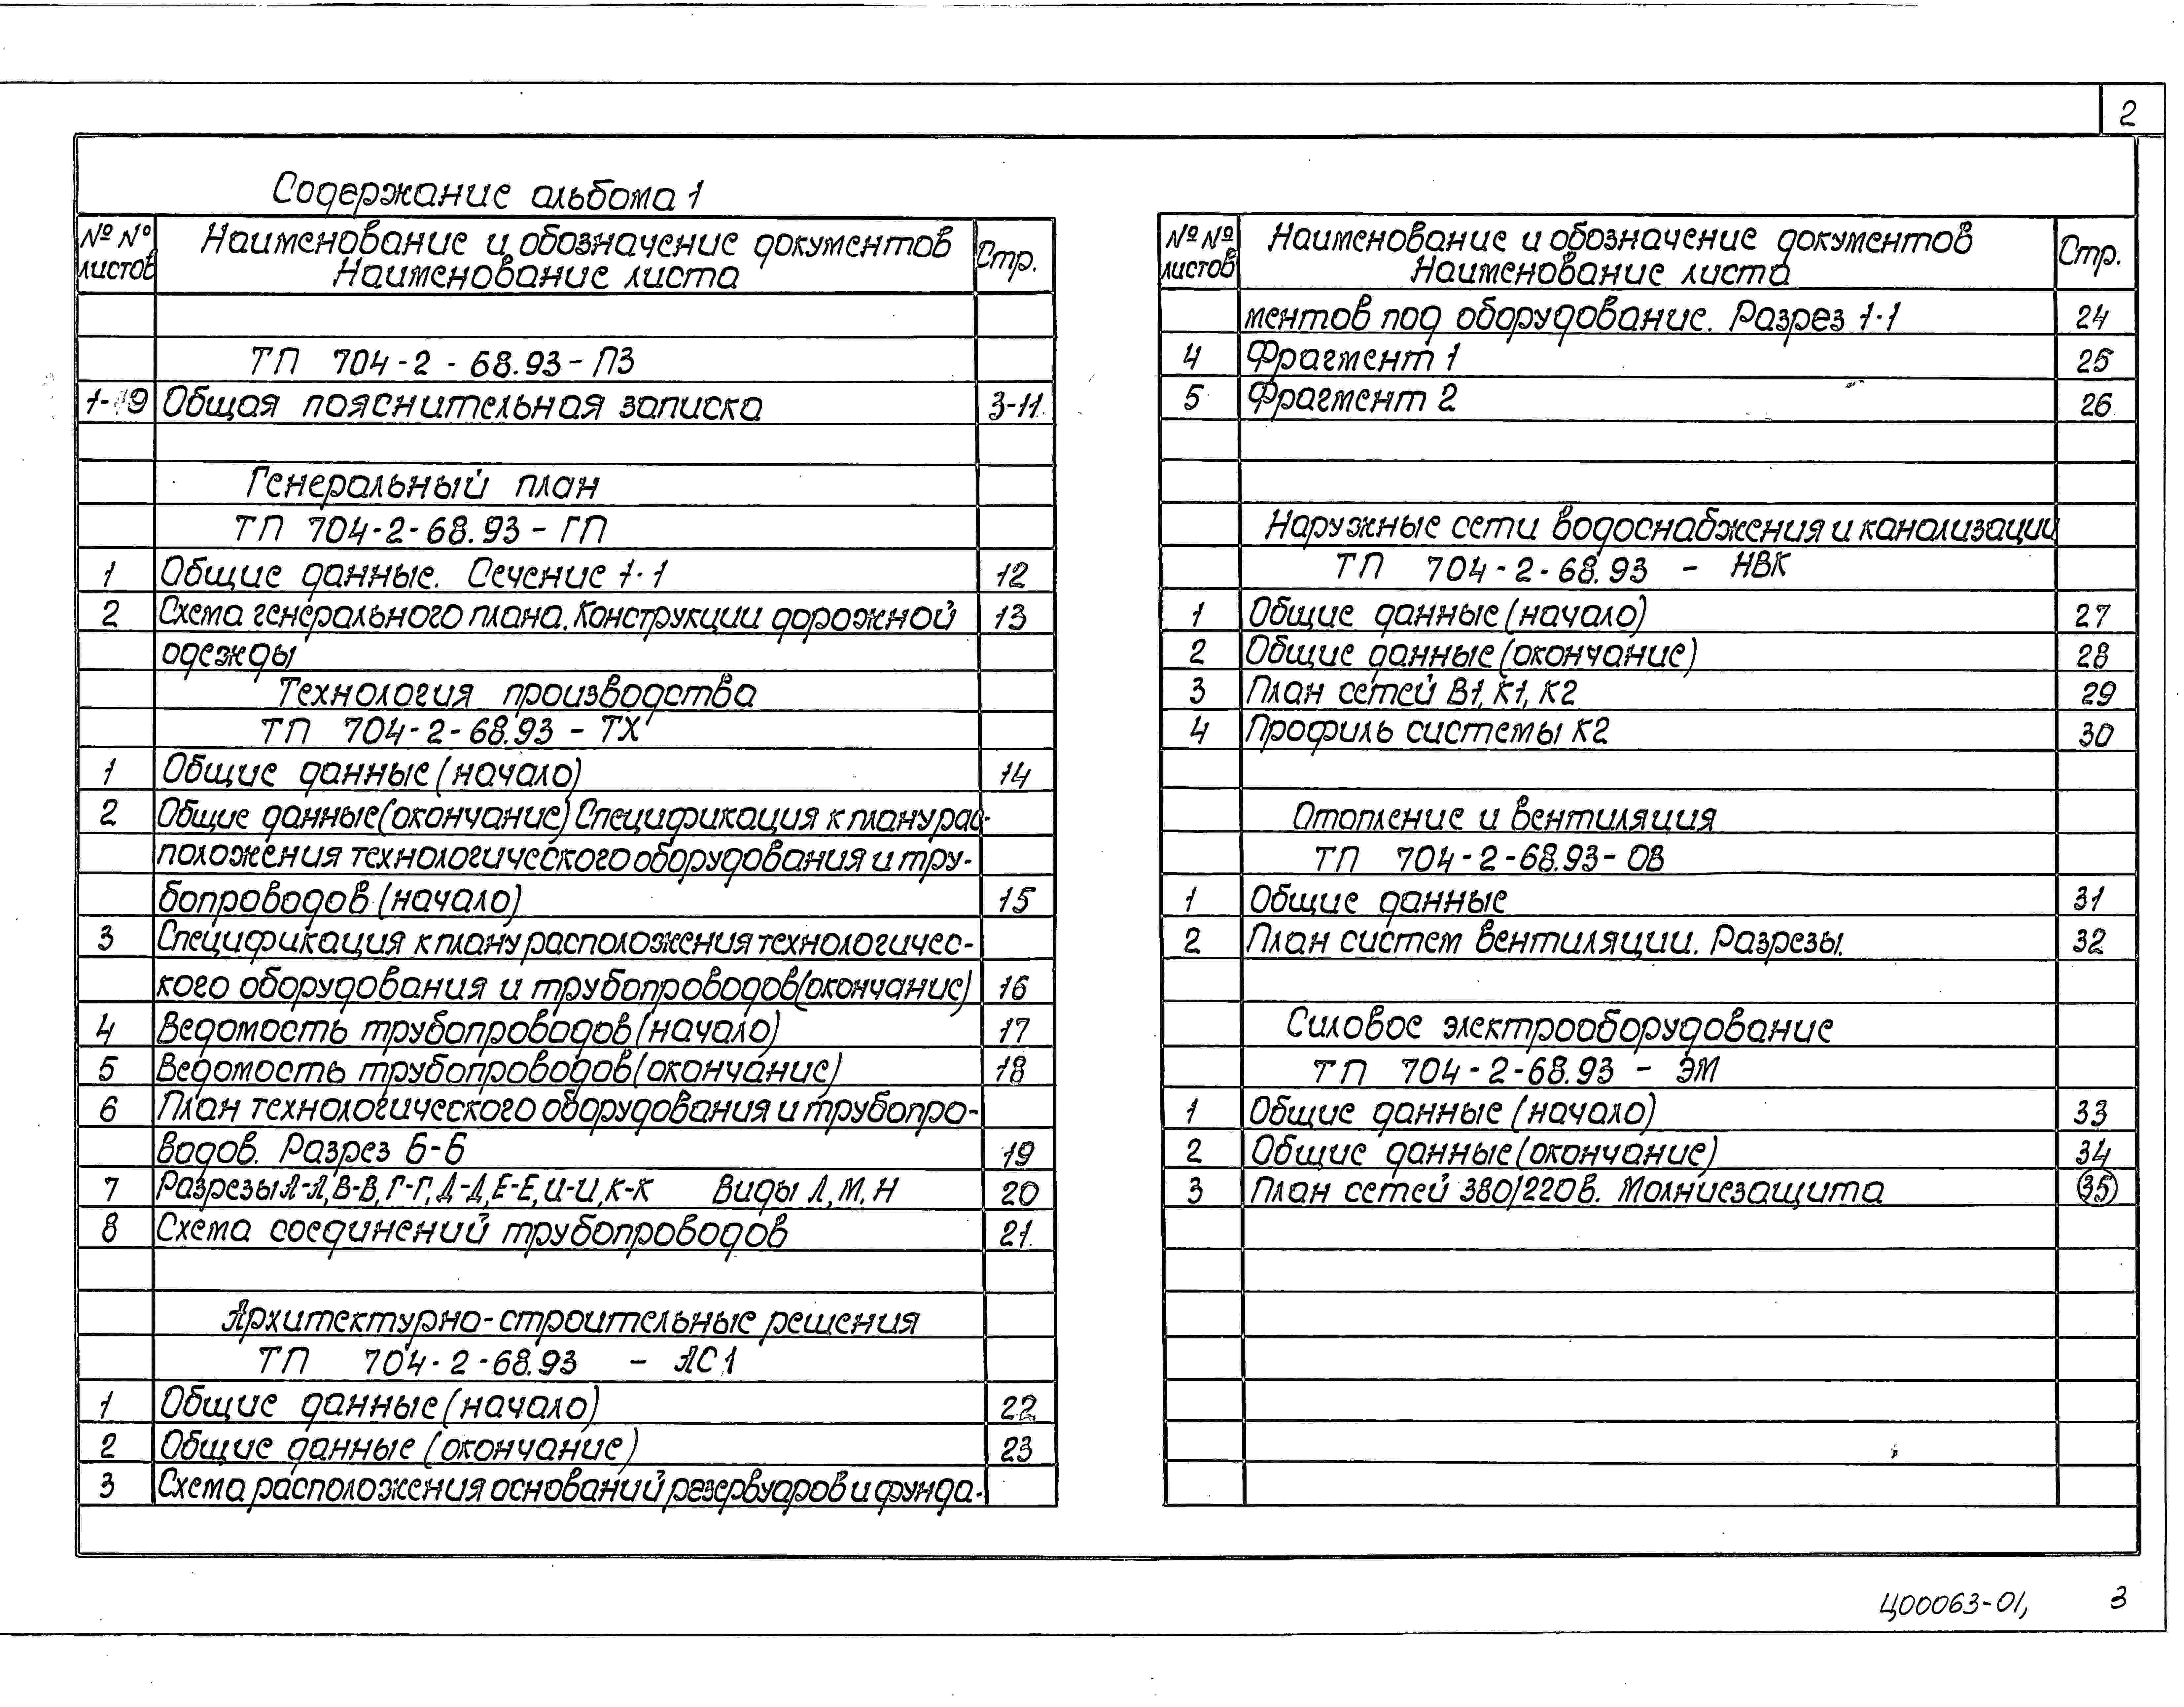 2
Содержание альбома 1
№ № листов Наименование и обозначение документов Наименование листа Стр.
ТП 704-2-68.93-ПЗ
Общая пояснительная записка 3-11
Генеральный план
ТП 704-2-68.93-ГП
1 Общие данные. Сечение 1-1 12
2 Схема генерального плана. Конструкции дорожной 13
одежды
Технология производства
ТП 704-2-68.93-ТХ
1 Общие данные (начало) 14
2 Общие данные (окончание) Спецификация к плану рас-
положения технологического оборудования и тру-
бопроводов (начало) 15
3 Спецификация к плану расположения технологичес-
кого оборудования и трубопроводов (окончание) 16
4 Ведомость трубопроводов (начало) 17
5 Ведомость трубопроводов (окончание) 18
6 План технологического оборудования и трубопро-
водов. Разрез Б-Б 19
7 Разрезы А-А, В-В, Г-Г, Д-Д, Е-Е, И-И, К-К Виды Л, М, Н 20
8 Схема соединений трубопроводов 21
Архитектурно-строительные решения
ТП 704-2-68.93 - АС1
1 Общие данные (начало) 22
2 Общие данные (окончание) 23
3 Схема расположения оснований резервуаров и фунда-
№ № листов Наименование и обозначение документов Наименование листа Стр.
ментов под оборудование. Разрез 1-1 24
4 Фрагмент 1 25
5 Фрагмент 2 26
Наружные сети водоснабжения и канализации
ТП 704-2-68.93 - НВК
1 Общие данные (начало) 27
2 Общие данные (окончание) 28
3 План сетей В1, К1, К2 29
4 Профиль системы К2 30
Отопление и вентиляция
ТП 704-2-68.93-ОВ
1 Общие данные 31
2 План систем вентиляции. Разрезы. 32
Силовое электрооборудование
ТП 704-2-68.93 - ЭМ
1 Общие данные (начало) 33
2 Общие данные (окончание) 34
3 План сетей 380/220в. Молниезащита 35
Ц00063-01, 3